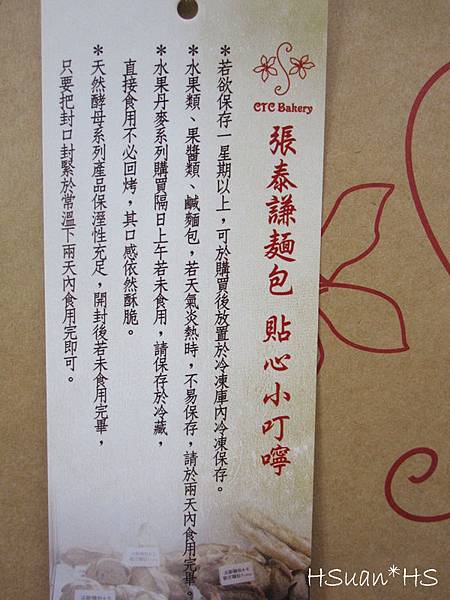 CTC Bakery
張泰謙麵包 貼心小叮嚀
*若欲保存一星期以上，可於購買後放置於冷凍庫內冷凍保存。
*水果類、果醬類、鹹麵包，若天氣炎熱時，不易保存，請於兩天內食用完畢。
*水果丹麥系列購買隔日上午若未食用，請保存於冷藏，
直接食用不必回烤，其口感依然酥脆。
*天然酵母系列產品保溼性充足，開封後若未食用完畢，
只要把封口封緊於常溫下兩天內食用完即可。
HSuan*HS